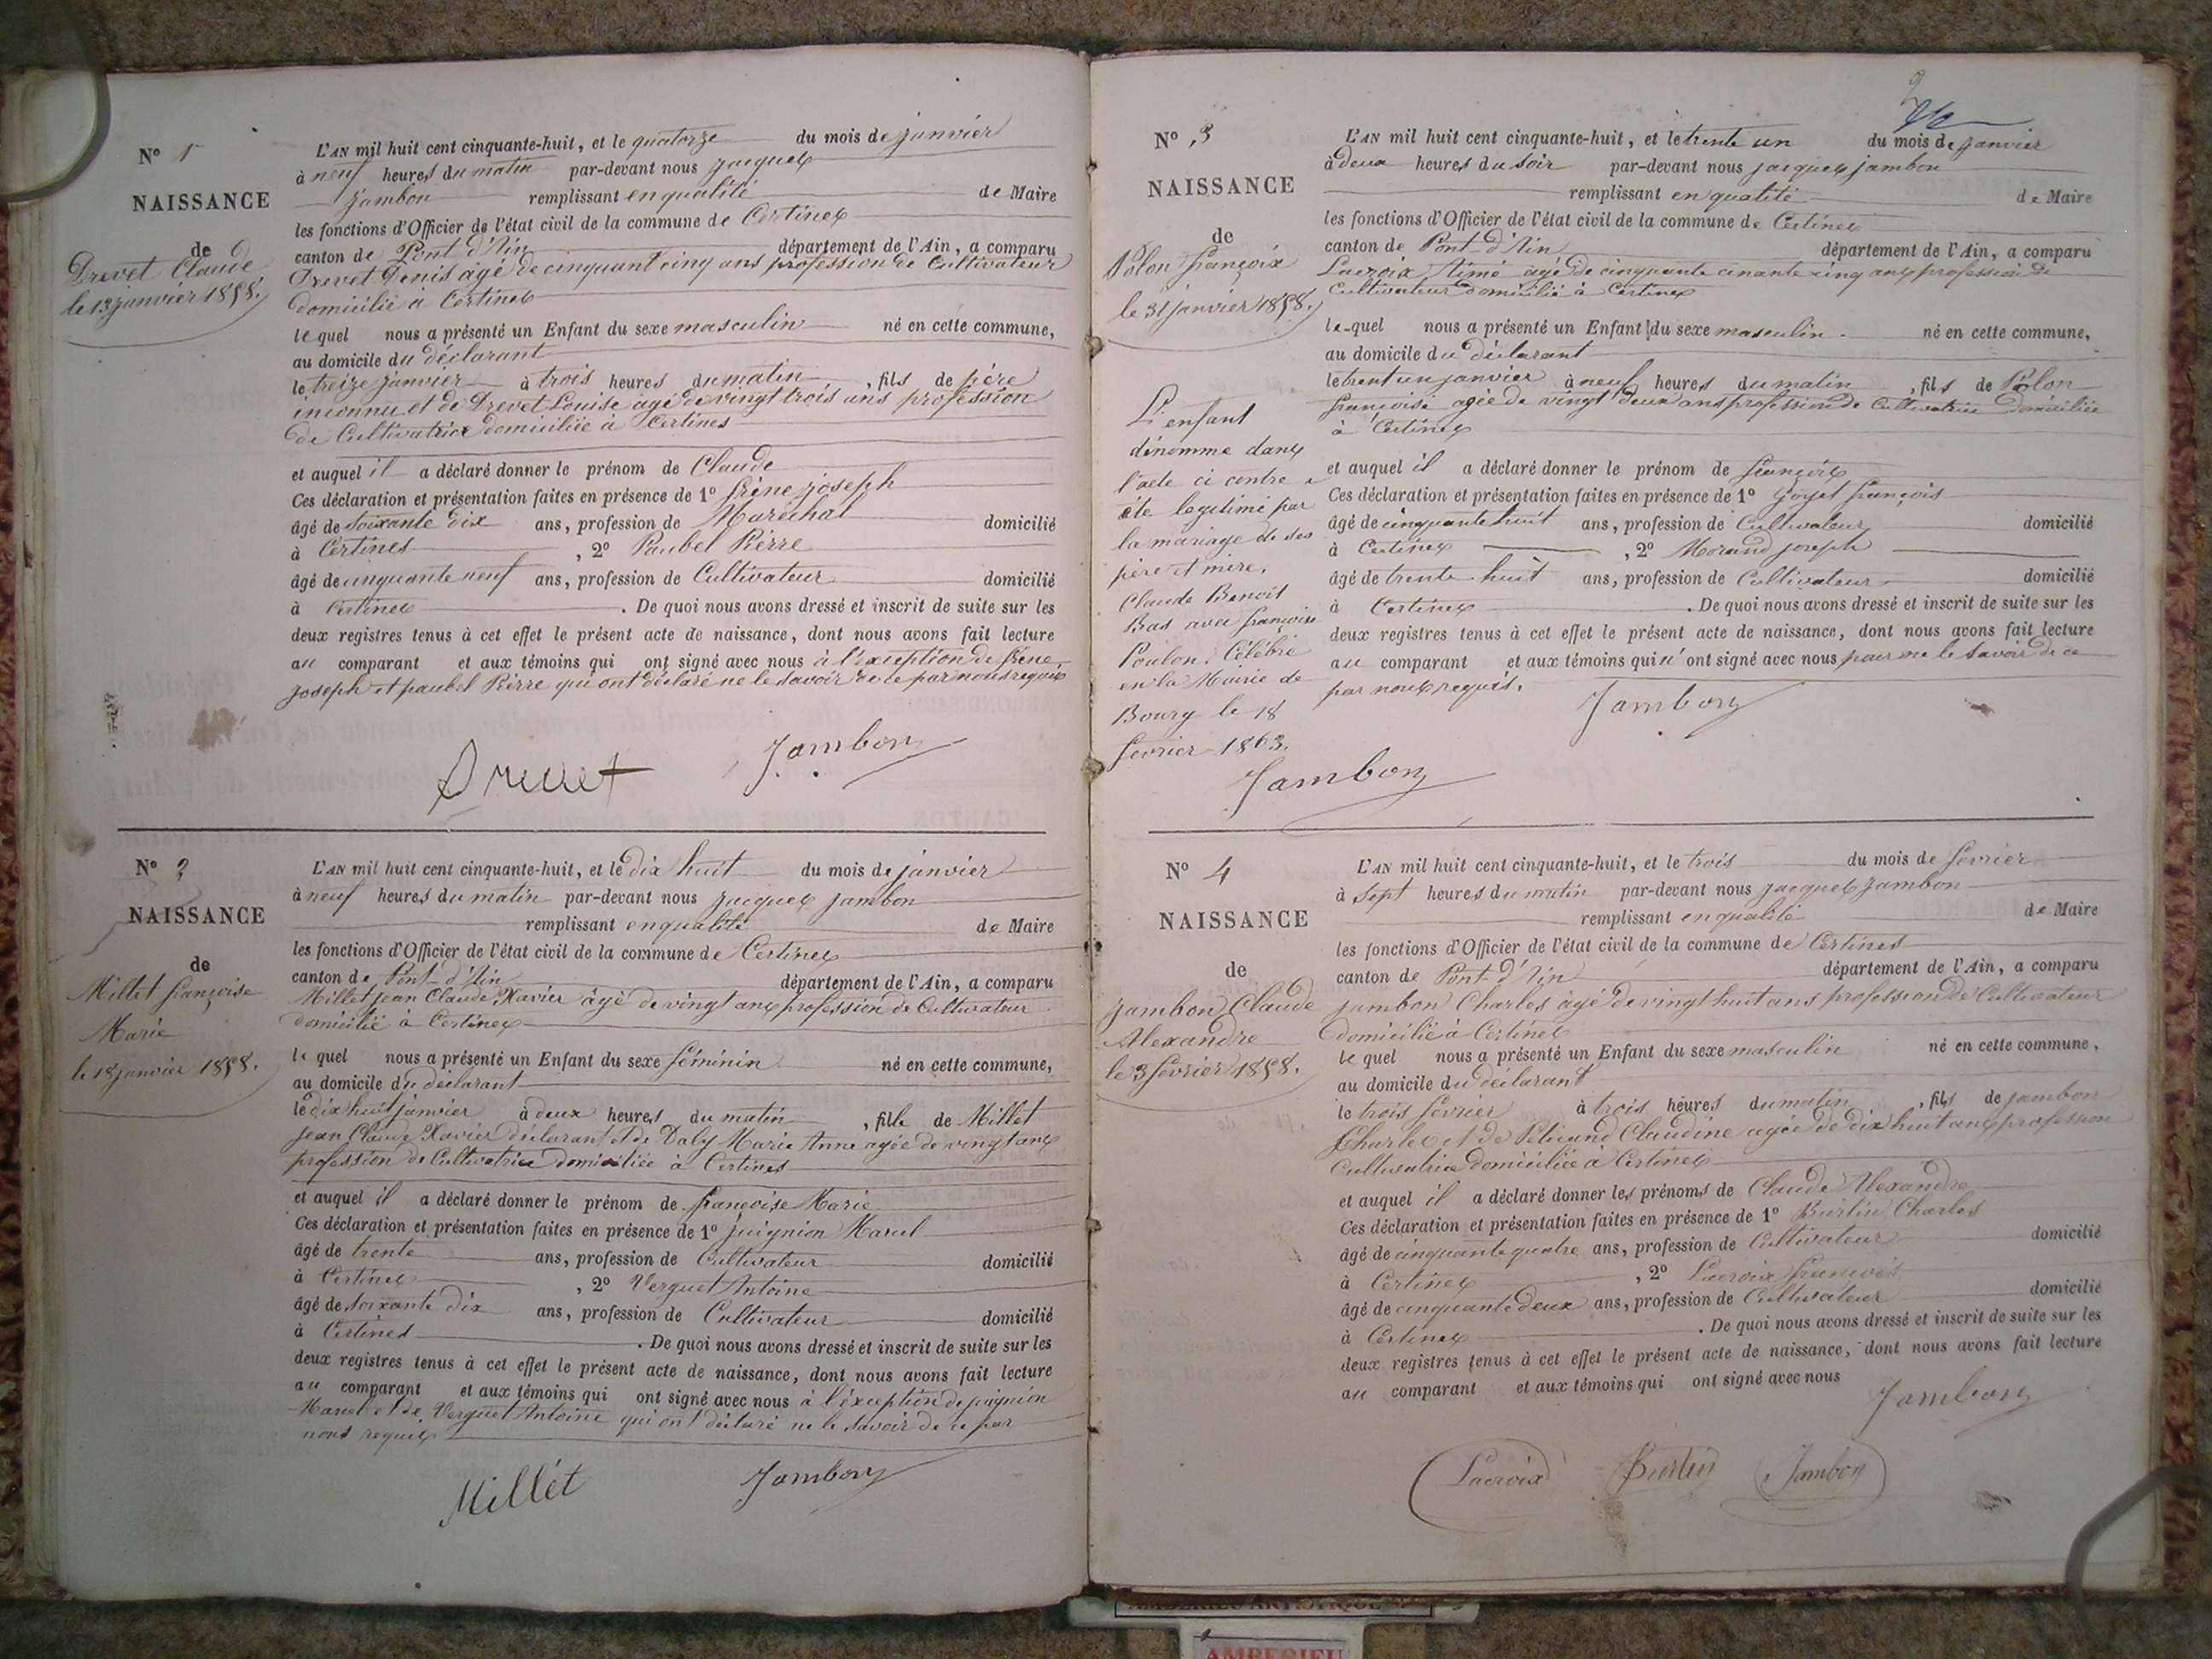 N° 1
NAISSANCE
de
Drevet Claude
le 13 janvier 1858.
L'AN mil huit cent cinquante-huit, et le quatorze du mois de janvier
à neuf heures du matin par-devant nous jacques
jambon remplissant en qualité de Maire
les fonctions d'Officier de l'état civil de la commune de Certines
canton de Pont d'Ain département de l'Ain, a comparu
Drevet Denis agé de cinquant cinq ans profession de Cultivateur
domicilié à Certines
lequel nous a présenté un Enfant du sexe masculin né en cette commune,
au domicile du déclarant
le treize janvier à trois heures du matin, fils de père
inconnu et de Drevet Louise agé de vingt trois ans profession
de Cultivatrice domiciliée à Certines
et auquel il a déclaré donner le prénom de Claude
Ces déclaration et présentation faites en présence de 1° frène joseph
âgé de soixante dix ans, profession de Maréchal domicilié
à Certines, 2° Paubel Pierre
âgé de cinquante neuf ans, profession de Cultivateur domicilié
à Certines. De quoi nous avons dressé et inscrit de suite sur les
deux registres tenus à cet effet le présent acte de naissance, dont nous avons fait lecture
au comparant et aux témoins qui ont signé avec nous à l'exception de frene
joseph et paubel Pierre qui ont déclaré ne le savoir de ce par nous requis
Drevet Jambon
N° 2
NAISSANCE
de
Millet françoise
Marie
le 18 janvier 1858.
L'AN mil huit cent cinquante-huit, et le dix huit du mois de janvier
à neuf heures du matin par-devant nous jacques jambon
remplissant en qualité de Maire
les fonctions d'Officier de l'état civil de la commune de Certines
canton de Pont-d'Ain département de l'Ain, a comparu
Millet jean Claude Xavier âgé de vingt ans profession de Cultivateur
domicilié à Certines
lequel nous a présenté un Enfant du sexe féminin né en cette commune,
au domicile du déclarant
le dix huit janvier à deux heures du matin, fille de Millet
jean Claude Xavier déclarant et de Daly Marie Anne agée de vingt ans
profession de Cultivatrice domiciliée à Certines
et auquel il a déclaré donner le prénom de françoise Marie
Ces déclaration et présentation faites en présence de 1° juignion Marcel
âgé de trente ans, profession de Cultivateur domicilié
à Certines, 2° Verguet Antoine
âgé de soixante dix ans, profession de Cultivateur domicilié
à Certines. De quoi nous avons dressé et inscrit de suite sur les
deux registres tenus à cet effet le présent acte de naissance, dont nous avons fait lecture
au comparant et aux témoins qui ont signé avec nous à l'éxception de juignion
Marcel et de Verguet Antoine qui ont déclaré ne le savoir de ce par
nous requis
Millét Jambon
2
N° 3
NAISSANCE
de
Polon françois
le 31 janvier 1858.
L'enfant
dénommé dans
l'acte ci contre a
été légitimé par
la mariage de ses
père et mère,
Claude Benoit
Bas avec françoise
Poulon. Célébré
en la Mairie de
Bourg le 18
fevrier 1863.
Jambon
L'AN mil huit cent cinquante-huit, et le trente un du mois de janvier
à deux heures du soir par-devant nous jacques jambon
remplissant en qualité de Maire
les fonctions d'Officier de l'état civil de la commune de Certines
canton de Pont-d'Ain département de l'Ain, a comparu
Lacroix Aimé agé de cinquante cinq ans profession de
Cultivateur domicilié à Certines
le-quel nous a présenté un Enfant du sexe masculin né en cette commune,
au domicile du déclarant
le trent un janvier à neuf heures du matin, fils de Polon
françoise agée de vingt deux ans profession de Cultivatrice domiciliée
à Certines
et auquel il a déclaré donner le prénom de françois
Ces déclaration et présentation faites en présence de 1° Goyet françois
âgé de cinquante huit ans, profession de Cultivateur domicilié
à Certines, 2° Morand joseph
âgé de trente huit ans, profession de Cultivateur domicilié
à Certines. De quoi nous avons dressé et inscrit de suite sur les
deux registres tenus à cet effet le présent acte de naissance, dont nous avons fait lecture
au comparant et aux témoins qui n'ont signé avec nous pour ne le savoir de ce
par nous requis.
Jambon
N° 4
NAISSANCE
de
jambon Claude
Alexandre
le 3 février 1858.
L'AN mil huit cent cinquante-huit, et le trois du mois de février
à sept heures du matin par-devant nous jacques jambon
remplissant en qualité de Maire
les fonctions d'Officier de l'état civil de la commune de Certines
canton de Pont-d'Ain département de l'Ain, a comparu
jambon Charles âgé de vingt huit ans profession de Cultivateur
domicilié à Certines
lequel nous a présenté un Enfant du sexe masculin né en cette commune,
au domicile du déclarant
le trois février à trois heures du matin, fils de jambon
Charles et de Pélicand Claudine agée de dix huit ans profession
Cultivatrice domiciliée à Certines
et auquel il a déclaré donner les prénoms de Claude Alexandre
Ces déclaration et présentation faites en présence de 1° Burlin Charles
âgé de cinquante quatre ans, profession de Cultivateur domicilié
à Certines, 2° Lacroix francois
âgé de cinquante deux ans, profession de Cultivateur domicilié
à Certines. De quoi nous avons dressé et inscrit de suite sur les
deux registres tenus à cet effet le présent acte de naissance, dont nous avons fait lecture
au comparant et aux témoins qui ont signé avec nous
Jambon
Lacroix Burlin Jambon
AMBERIEU ARTISTIQUE
AMBERIEU